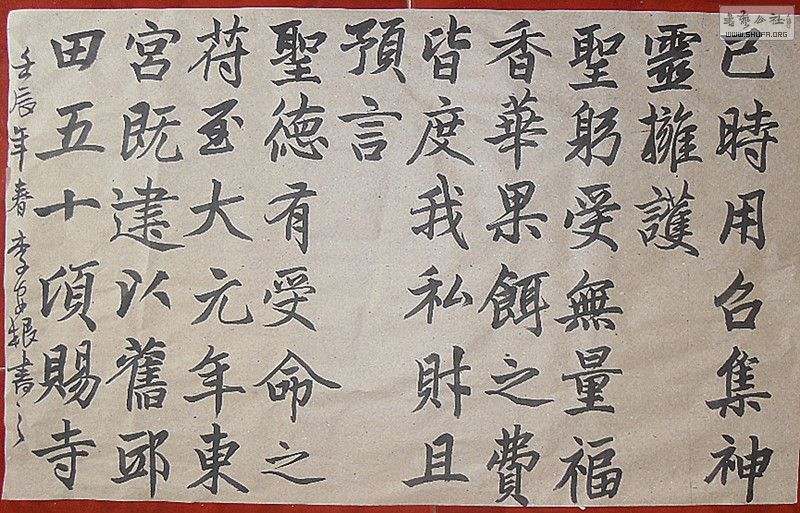 已時用召集神
靈擁護
聖躬受無量福
香華果餌之費
皆度我私財且
預言
聖德有受命之
符至大元年東
宮既建以舊邸
田五十頃賜寺
壬辰年春李安根書之
書法公社
WWW.SHUFA.ORG